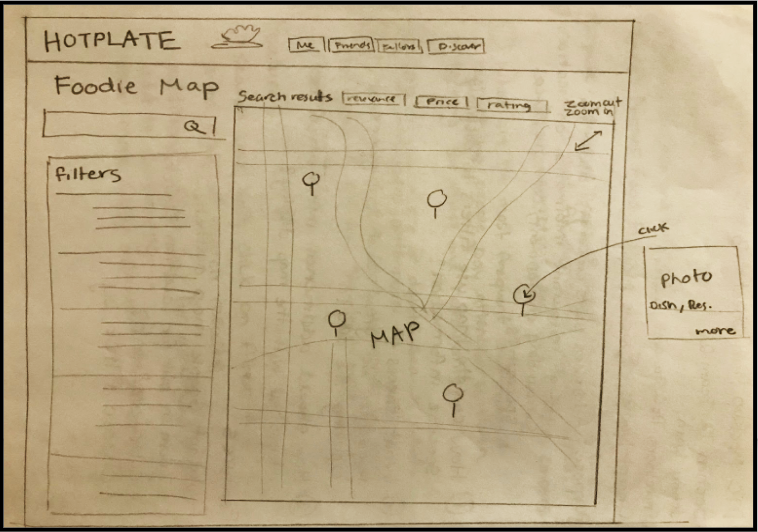 HOTPLATE
Me Friends Follows Discover
Foodie Map
Search results relevance Price rating
Zoom out
Zoom in
Filters
click
MAP
Photo
Dish, Res.
more